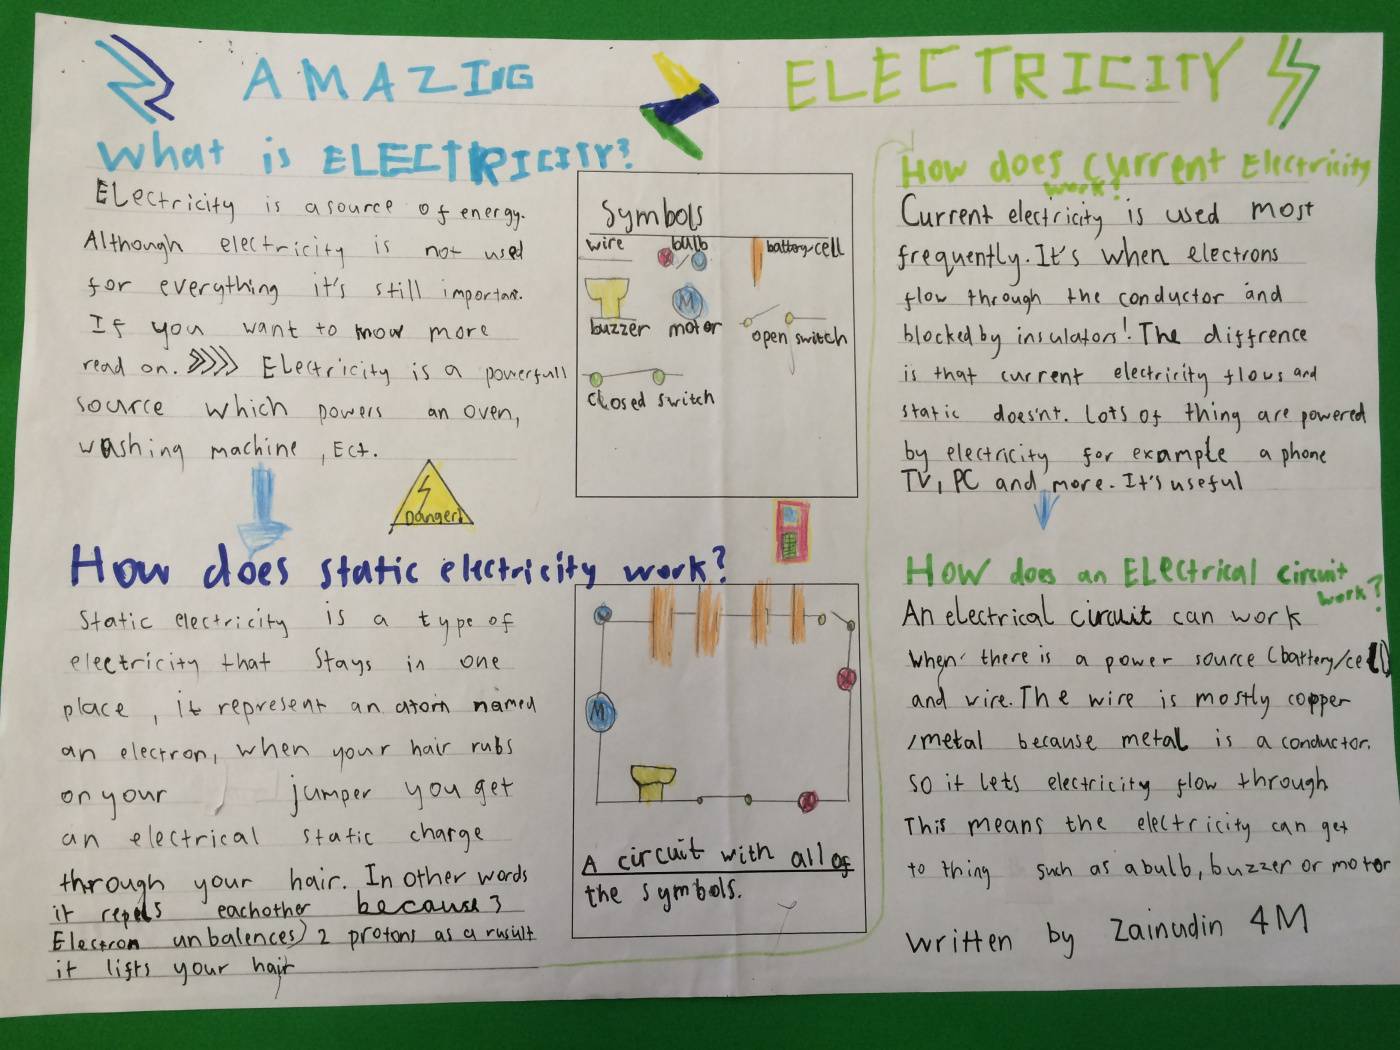 AMAZING ELECTRICITY
What is ELECTRICITY?
ELectricity is a source of energy.
Although electricity is not used
for everything it's still important.
If you want to know more
read on. >>>> ELectricity is a powerfull
source which powers an oven,
washing machine, Ect.
Danger!
How does static electricity work?
Static electricity is a type of
electricity that stays in one
place, it represent an atom named
an electron, when your hair rubs
on your jumper you get
an electrical static charge
through your hair. In other words
it repels eachother because 3
Electron unbalences) 2 protons as a rusult
it lifts your hair
Symbols
wire bulb battery cell
M
buzzer motor open switch
closed switch
M
A circuit with all of
the symbols.
How does current Electricity
work?
Current electricity is used most
frequently. It's when electrons
flow through the conductor and
blocked by insulators! The diffrence
is that current electricity flows and
static does'nt. Lots of thing are powered
by electricity for example a phone
TV, PC and more. It's useful
How does an ELectrical circuit
work?
An electrical circuit can work
when there is a power source (battery/cell)
and wire. The wire is mostly copper
/metal because metal is a conductor.
so it lets electricity flow through
This means the electricity can get
to thing such as a bulb, buzzer or motor
written by Zainudin 4M